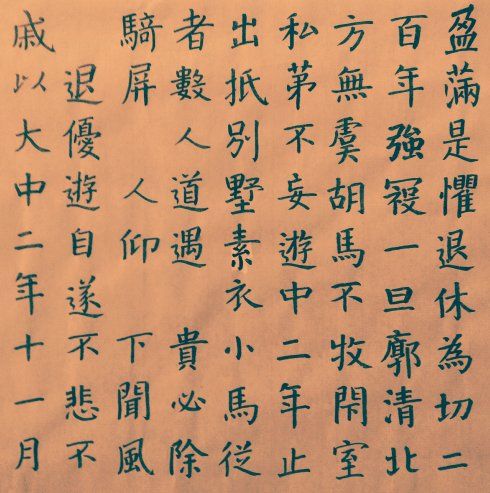 盈滿是懼退休為切二
百年強寇一旦廓清北
方無虞胡馬不牧閑室
私苐不妄遊中二年止
出抵別墅素衣小馬従
者數人道遇 貴必除
騎屏 人仰 下聞風
退優遊自遂不悲不
戚以大中二年十一月